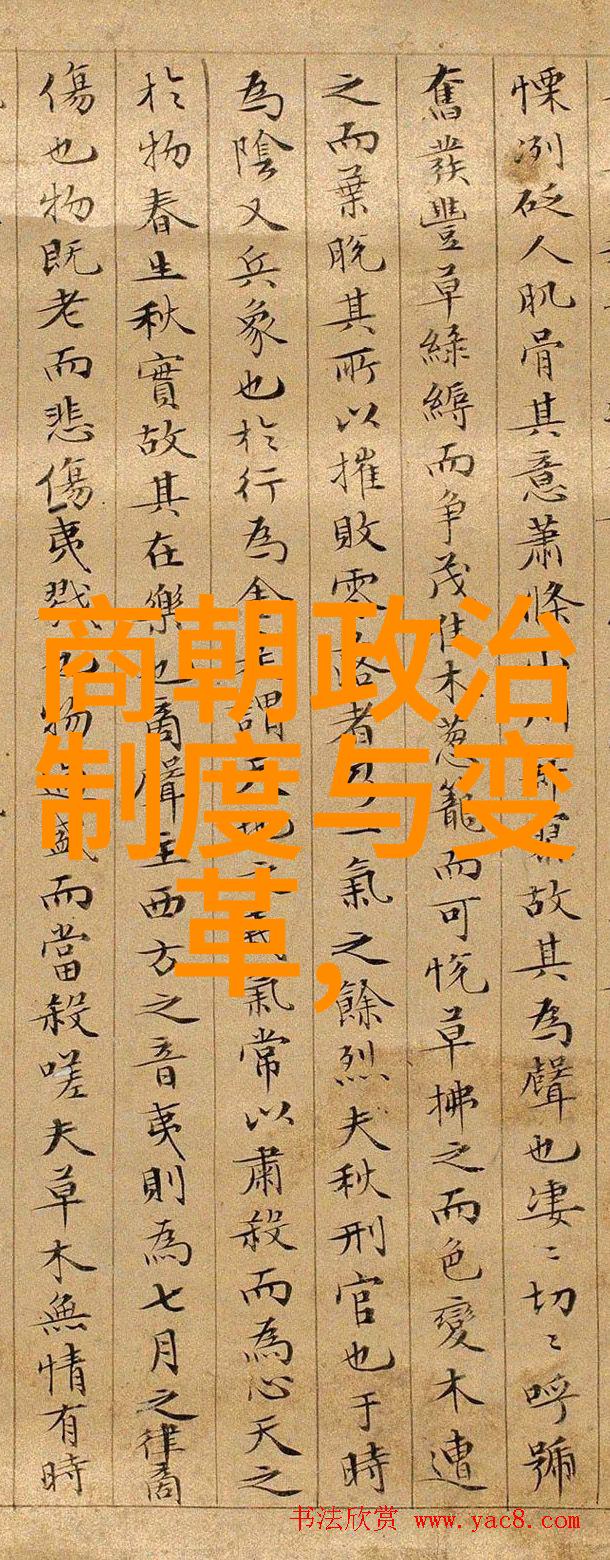 慄冽砭人肌骨其意蕭條山川寂寥故其為聲也凄〻切〻呼號
奮發豐草綠縟而争茂佳木葱籠而可悅草拂之而色變木遭
之而葉脱其所以摧敗零落者乃一氣之餘烈夫秋刑官也于時
為陰又兵象也於行為金是謂天地之義氣常以肅殺而為心天之
於物春生秋實故其在樂也商聲主西方之音夷則為七月之律商
傷也物既老而悲傷夷戮也物過盛而當殺嗟夫草木無情有時
商朝政治
制度与变
革,
书法欣赏 www.yac8.com